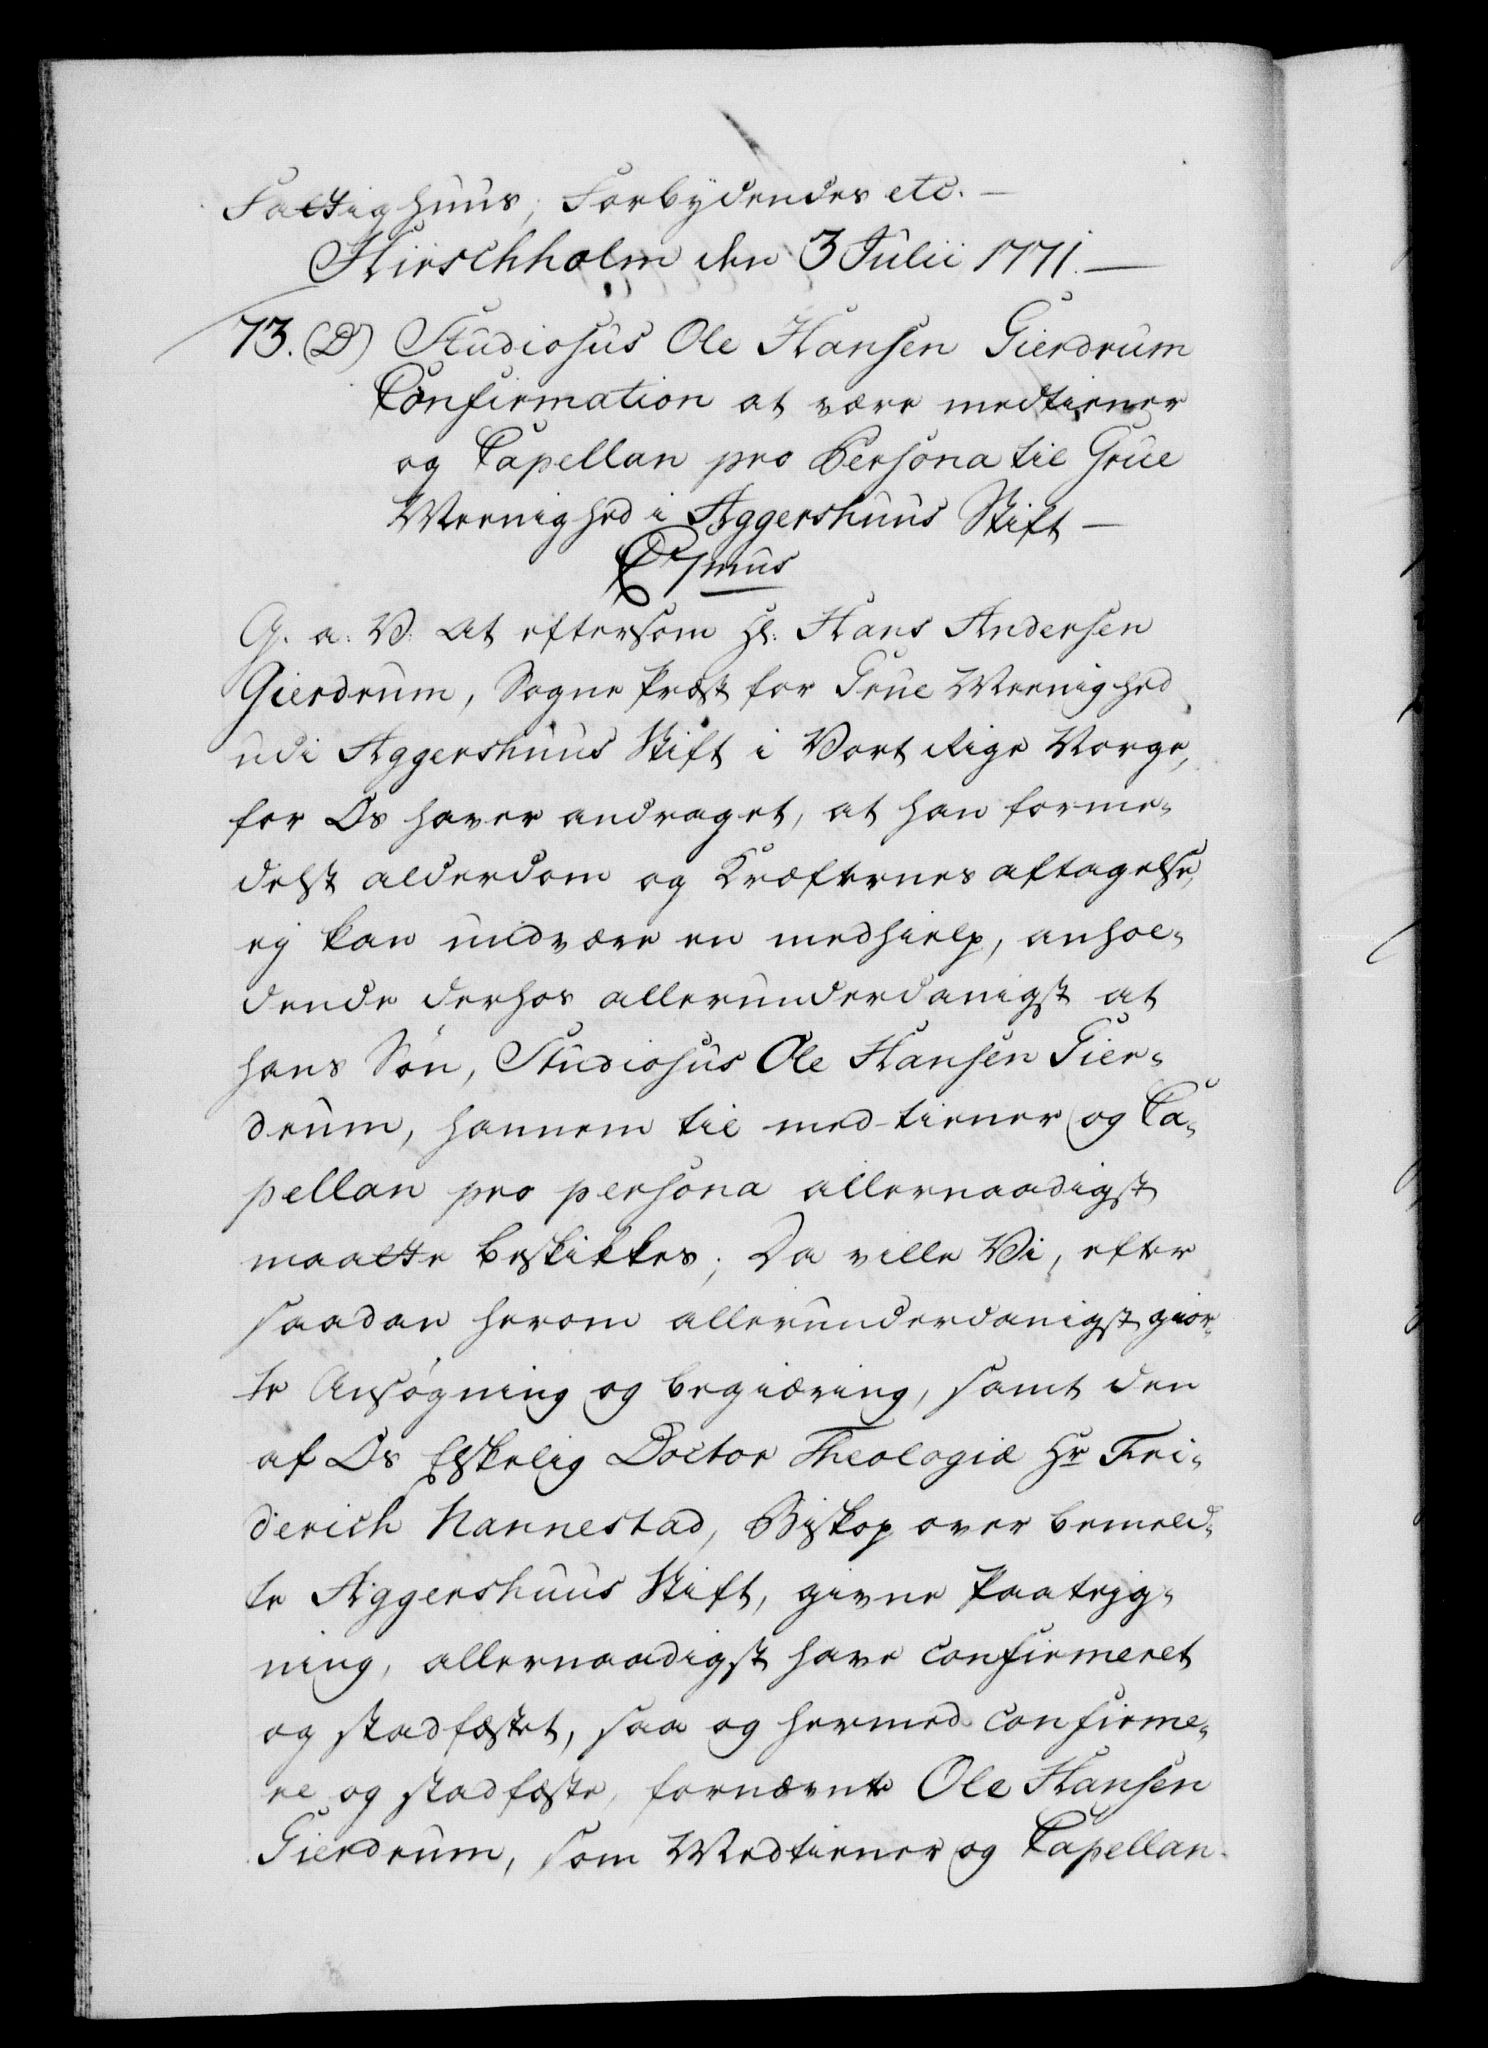 Fattighuus; Forbydendes etc. —
Hirschholm den 3 Julii 1771. —
73. (D) Studiosus Ole Hansen Gierdrum
Confirmation at være medtiener
og Capellan pro Persona til Grue
Menighed i Aggershuus Stift —
C 7mus
G. a: V: at eftersom Hr: Hans Andersen
Gierdrum, Sogne Præst for Grue Menighed
udi Aggershuus Stift i Vort Rige Norge,
for Os haver andraget, at han forme-
delst alderdom og Kræfternes aftagelse,
ej kan undvære en medhielp, anhol-
dende derhos allerunderdanigst at
hans Søn, Studiosus Ole Hansen Gier-
drum, hannem til med-tiener og Ca-
pellan pro persona allernaadigst
maatte beskikkes; Da ville Vi, efter
saadan herom allerunderdanigst gior-
te Ansøgning og begiæring, samt den
af Os Elskelig Doctor Theologiæ Hr Fri-
derich Nannestad, Biskop over bemeld-
te Aggershuus Stift, givne Paateg-
ning, allernaadigst have confirmeret
og stadfæstet, saa og hermed confirme-
re og stadfæste, fornævnte Ole Hansen
Gierdrum, som Medtiener og Capellan